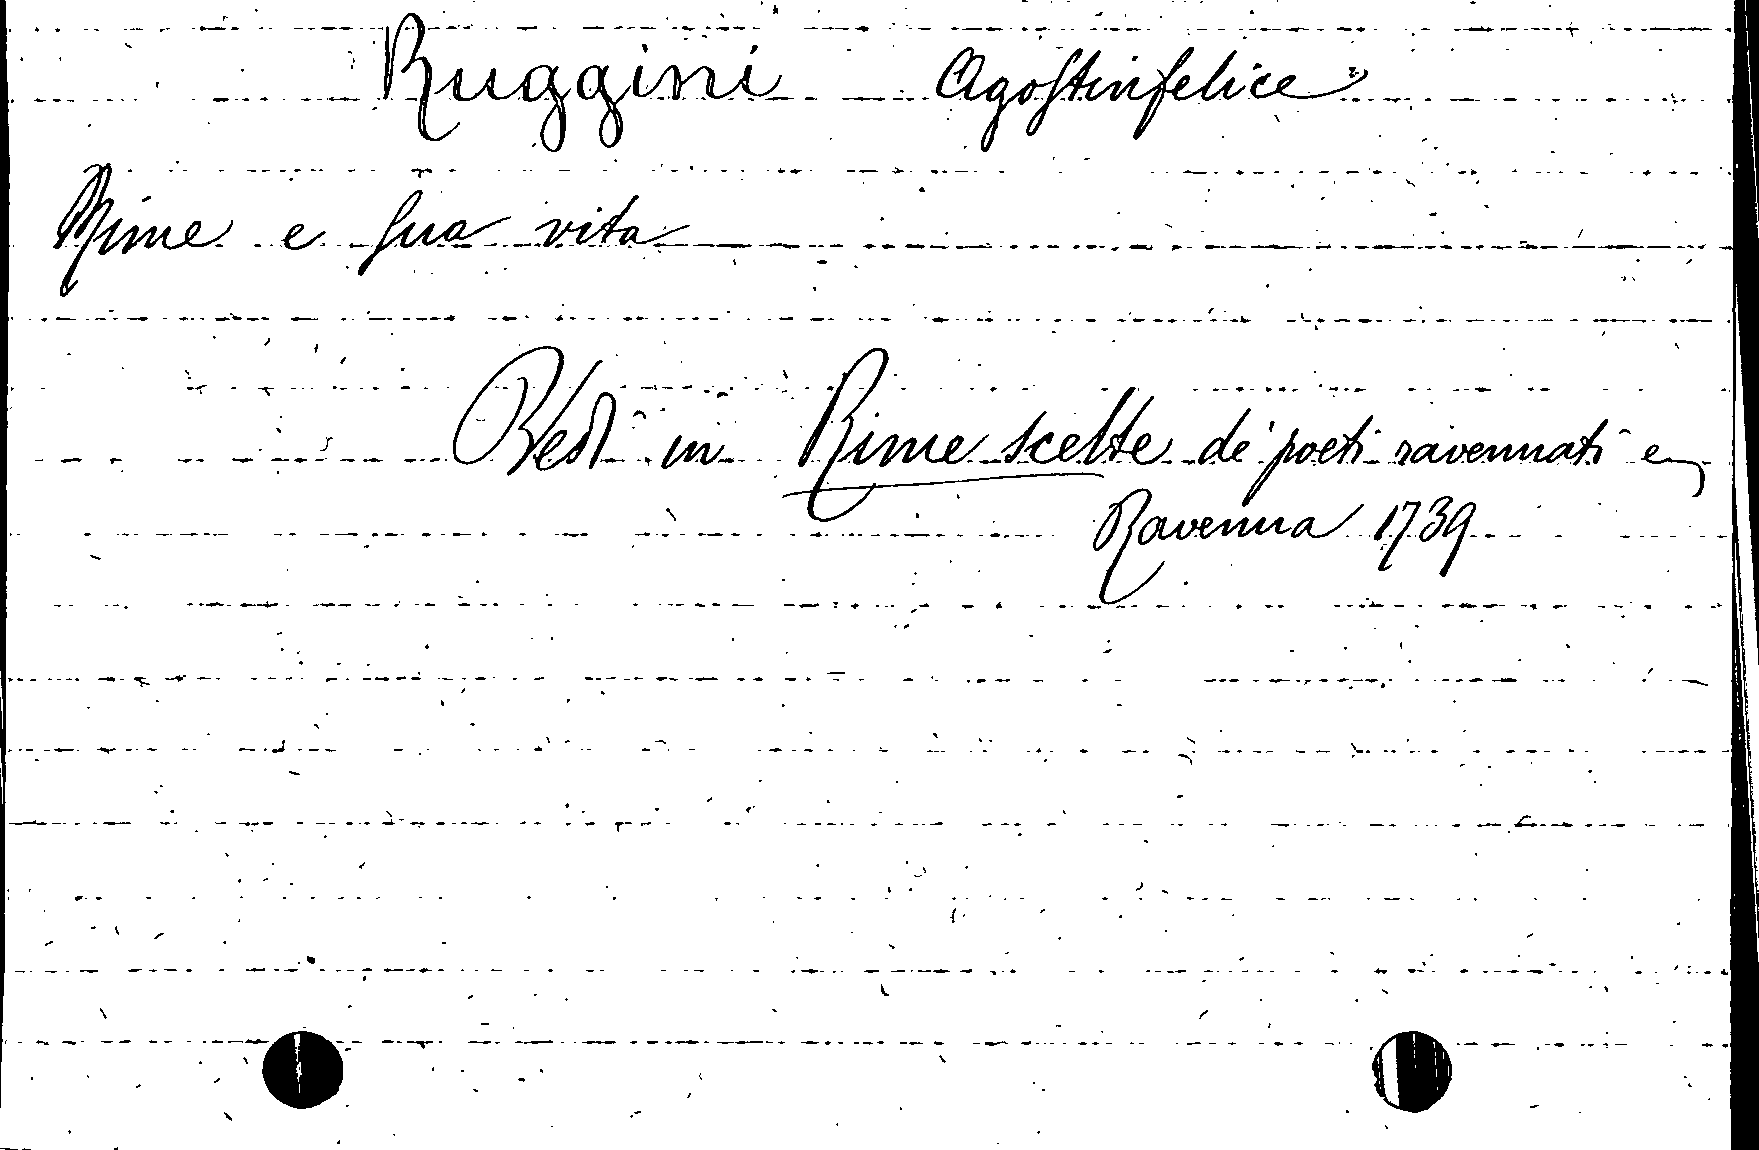 Ruggini Agostinfelice
Rime e sua vita
Vedi in Rime scelte de' poeti ravennati
Ravenna 1739